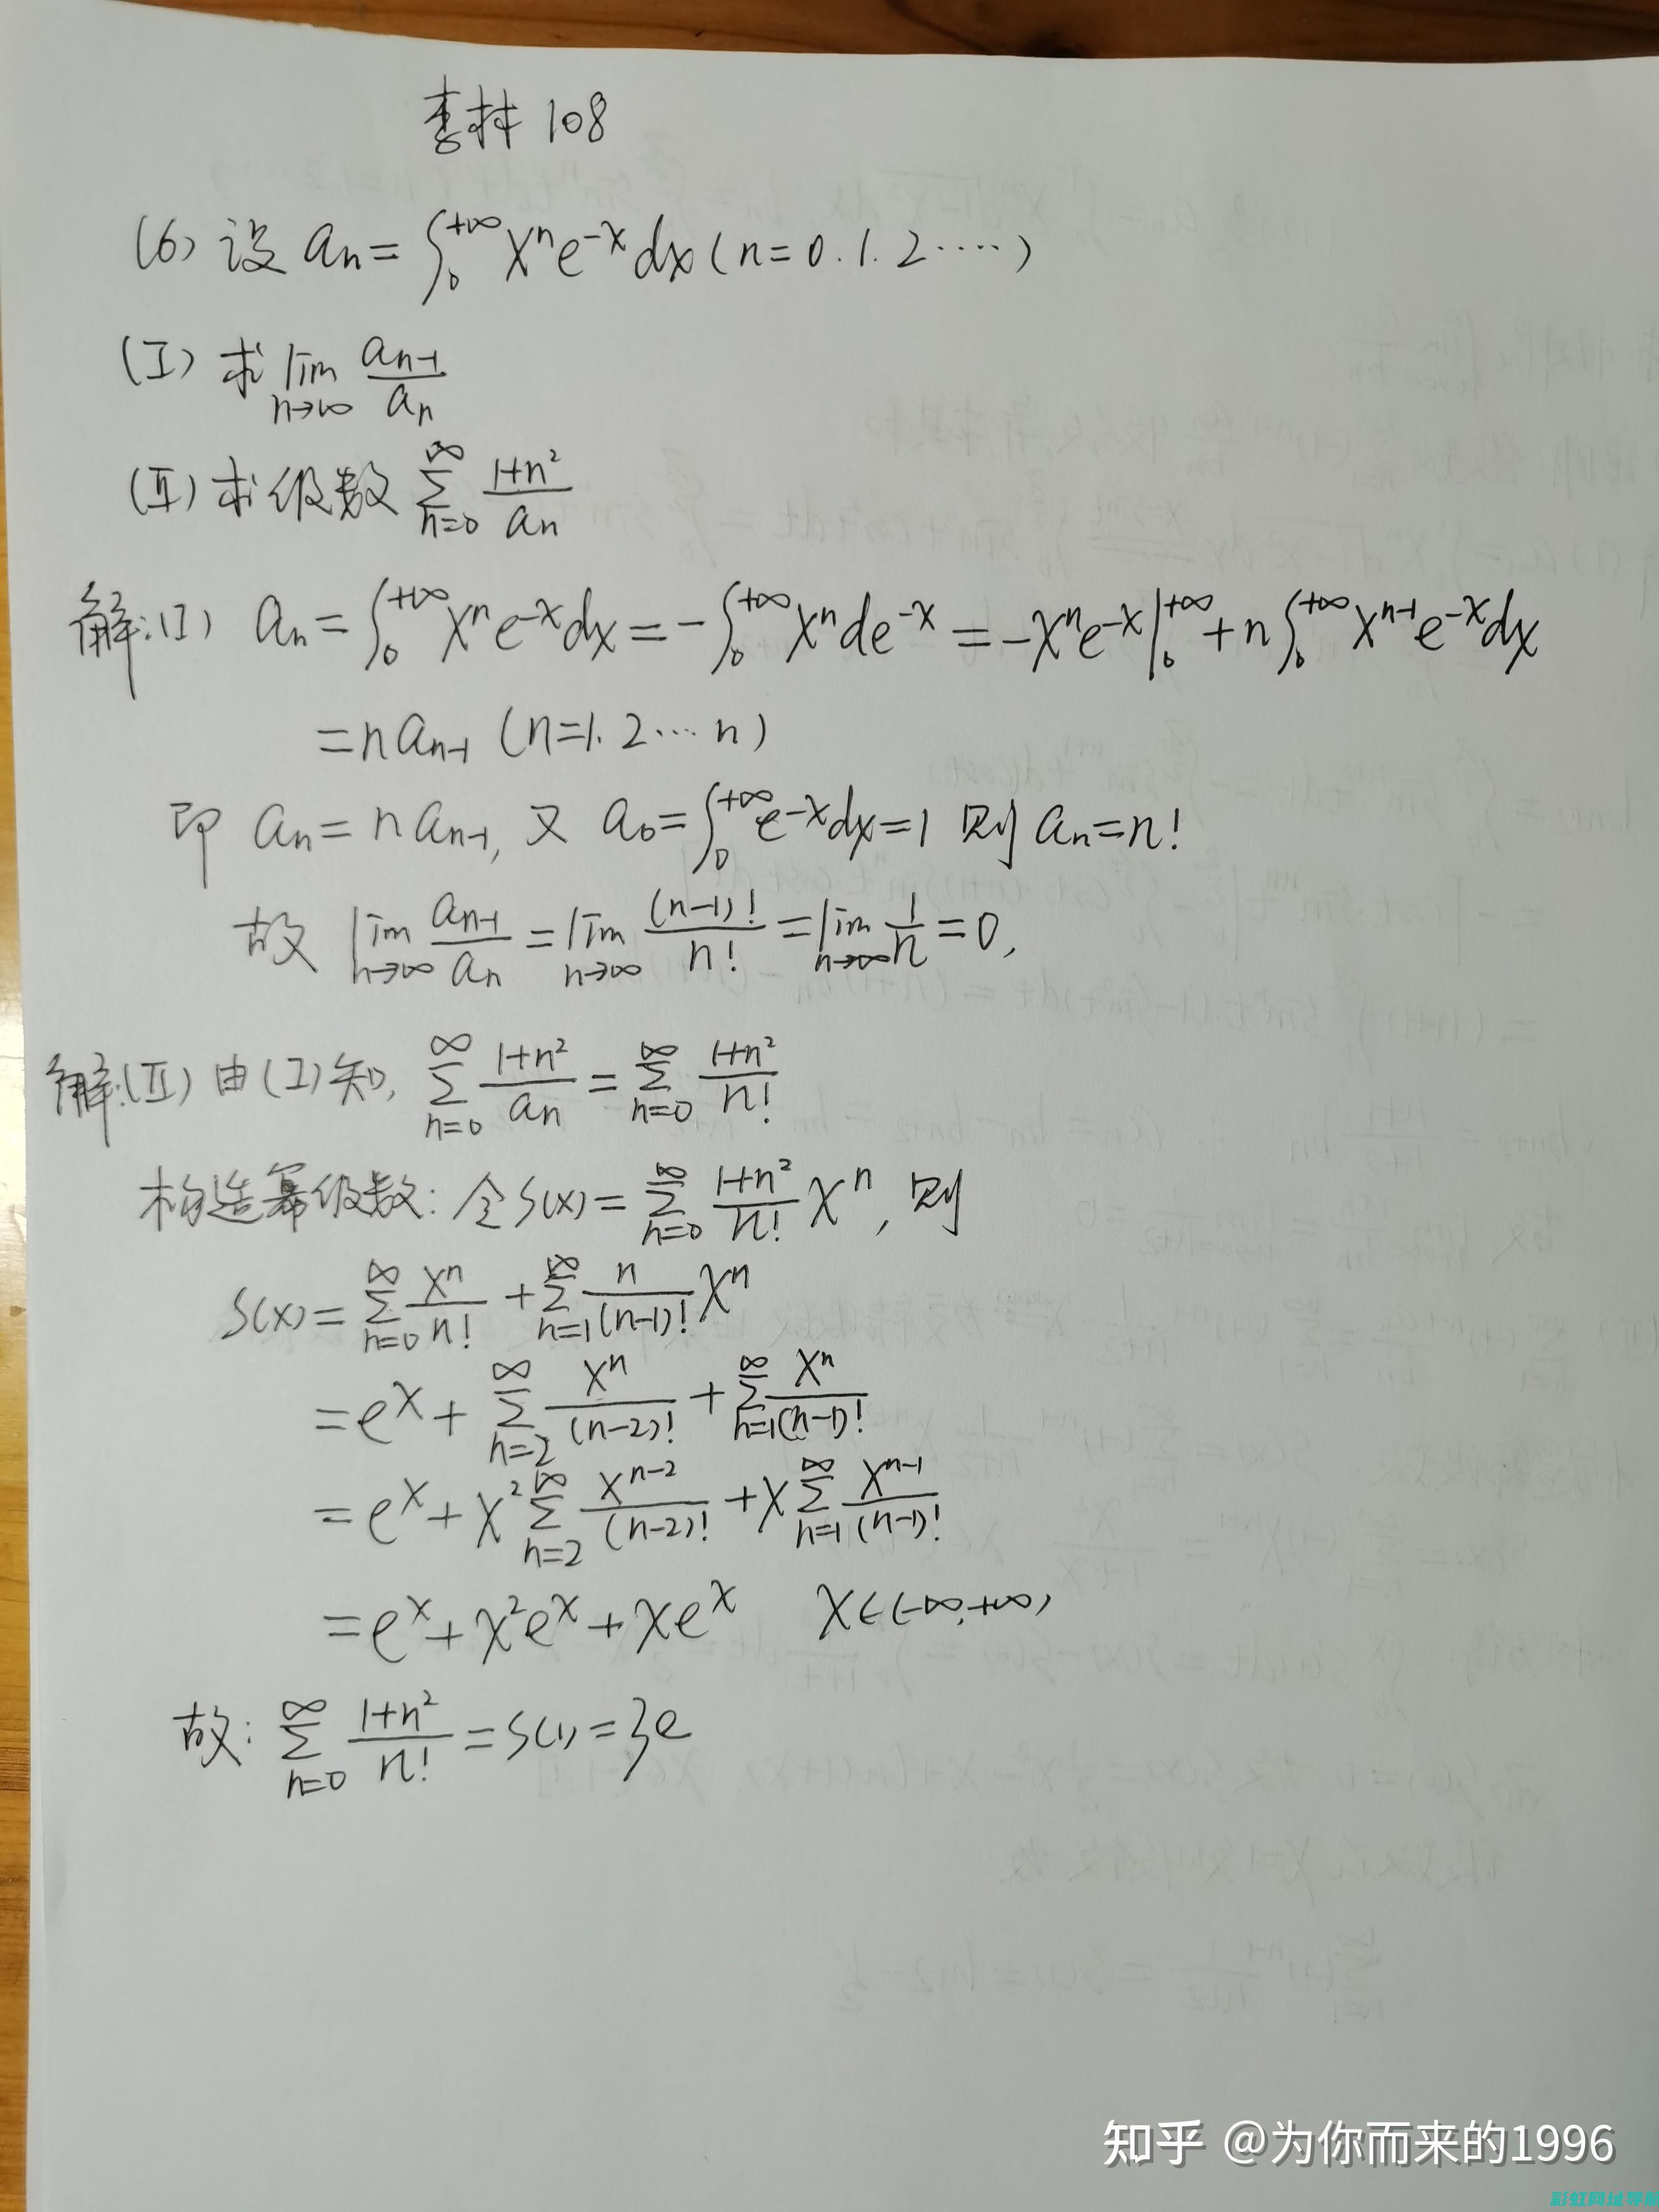 李林 108
(6) 设 aₙ = ∫₀^{+∞} xⁿe^{-x}dx (n=0.1.2·····)
(I) 求 lim_{n→∞} a_{n-1}/aₙ
(II) 求级数 ∑_{n=0}^{∞} (1+n²)/aₙ
解:(I) aₙ = ∫₀^{+∞} xⁿe^{-x}dx = -∫₀^{+∞} xⁿde^{-x} = -xⁿe^{-x}|₀^{+∞} + n∫₀^{+∞} x^{n-1}e^{-x}dx
= n a_{n-1} (n=1.2···n)
即 aₙ = n a_{n-1}, 又 a₀ = ∫₀^{+∞} e^{-x}dx = 1 则 aₙ = n!
故 lim_{n→∞} a_{n-1}/aₙ = lim_{n→∞} (n-1)!/n! = lim_{n→∞} 1/n = 0,
解:(II) 由(I)知, ∑_{n=0}^{∞} (1+n²)/aₙ = ∑_{n=0}^{∞} (1+n²)/n!
构造幂级数: 令 S(x) = ∑_{n=0}^{∞} (1+n²)/n! xⁿ, 则
S(x) = ∑_{n=0}^{∞} xⁿ/n! + ∑_{n=1}^{∞} n/(n-1)! xⁿ
= eˣ + ∑_{n=2}^{∞} xⁿ/(n-2)! + ∑_{n=1}^{∞} xⁿ/(n-1)!
= eˣ + x² ∑_{n=2}^{∞} x^{n-2}/(n-2)! + x ∑_{n=1}^{∞} x^{n-1}/(n-1)!
= eˣ + x²eˣ + xeˣ x∈(-∞,+∞)
故: ∑_{n=0}^{∞} (1+n²)/n! = S(1) = 3e
知乎 @为你而来的1996
彩虹网址导航